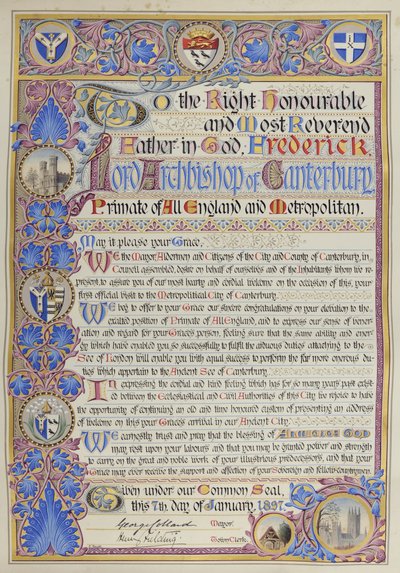 To the Right Honourable
and Most Reverend
Father in God, Frederick,
Lord Archbishop of Canterbury,
Primate of All England and Metropolitan.
May it please your Grace,
We the Mayor, Aldermen and Citizens of the City and County of Canterbury, in
Council assembled, desire on behalf of ourselves and of the Inhabitants whom we re-
present, to assure you of our most hearty and cordial welcome on the occasion of this, your
first official visit to the Metropolitical City of Canterbury.
We beg to offer to your Grace our sincere congratulations on your elevation to the
exalted position of Primate of All England, and to express our sense of vener-
ation and regard for your Grace's person, feeling sure that the same ability and ener-
gy which have enabled you so successfully to fulfil the arduous duties attaching to the
See of London will enable you with equal success to perform the far more onerous du-
ties which appertain to the Ancient See of Canterbury.
In expressing the cordial and kind feeling which has for so many years past exist-
ed between the Ecclesiastical and Civil Authorities of this City, we rejoice to have
the opportunity of continuing an old and time honoured custom of presenting an address
of welcome on this your Grace's arrival in our Ancient City.
We earnestly trust and pray that the blessing of Almighty God
may rest upon your labours, and that you may be granted power and strength
to carry on the great and noble work of your illustrious predecessors, and that your
Grace may ever receive the support and affection of your Sovereign and fellow countrymen.
Given under our Common Seal,
this 7th day of January, 1897.
George Collard Mayor.
Henry Fielding Town Clerk.